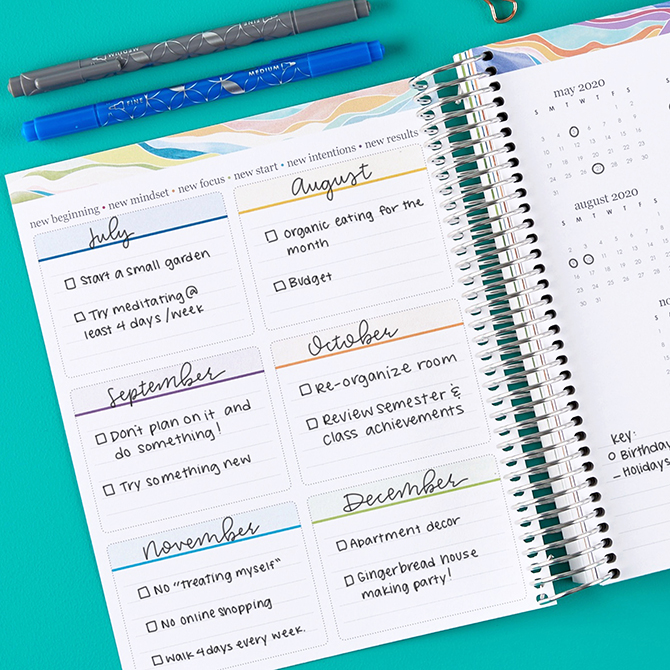 MEDIUM
FINE
FINE
MEDIUM
new beginning • new mindset • new focus • new start • new intentions • new results
July
Start a small garden
Try meditating @
least 4 days /week
August
Organic eating for the
month
Budget
September
Don't plan on it and
do something!
Try something new
October
Re-organize room
Review semester &
class achievements
November
No "treating myself"
No online shopping
Walk 4 days every week.
December
Apartment decor
Gingerbread house
making party!
may 2020
S M T W T F S
august 2020
S M T W T F S
Key:
O Birthday
— Holidays